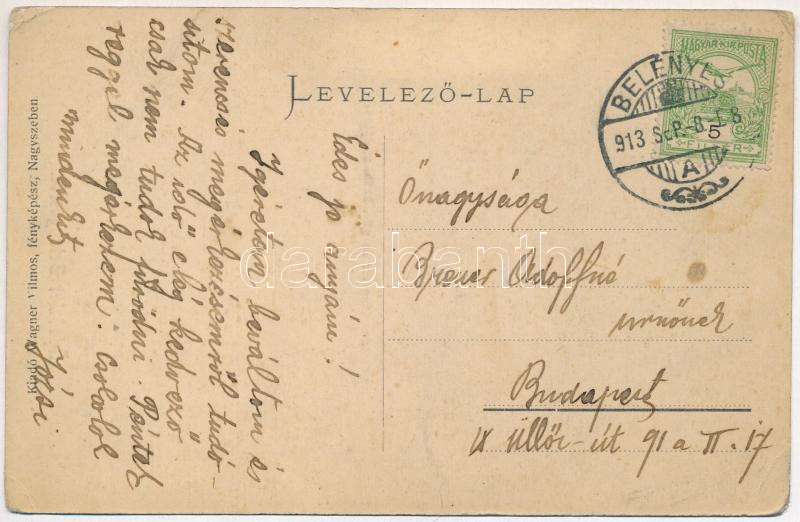 LEVELEZŐ-LAP
MAGYAR·KIR·POSTA
5
FILLÉR
BELÉNYES
913 SEP.-8.-
A
Édes jó anyám!
Igéretem beváltom és
szerencsés megérkezésemről tudó-
sitom. Az idő elég kedvező
csak nem tudok fürödni. Péntek
reggel megérkezem. Csókolok
mindenkit
Józsi.
Kiadó Wagner Vilmos, fényképész, Nagyszeben
Őnagysága
Adolfné
urnőnek
Budapest
IX Üllői-út 91 a II. 17
darabanth